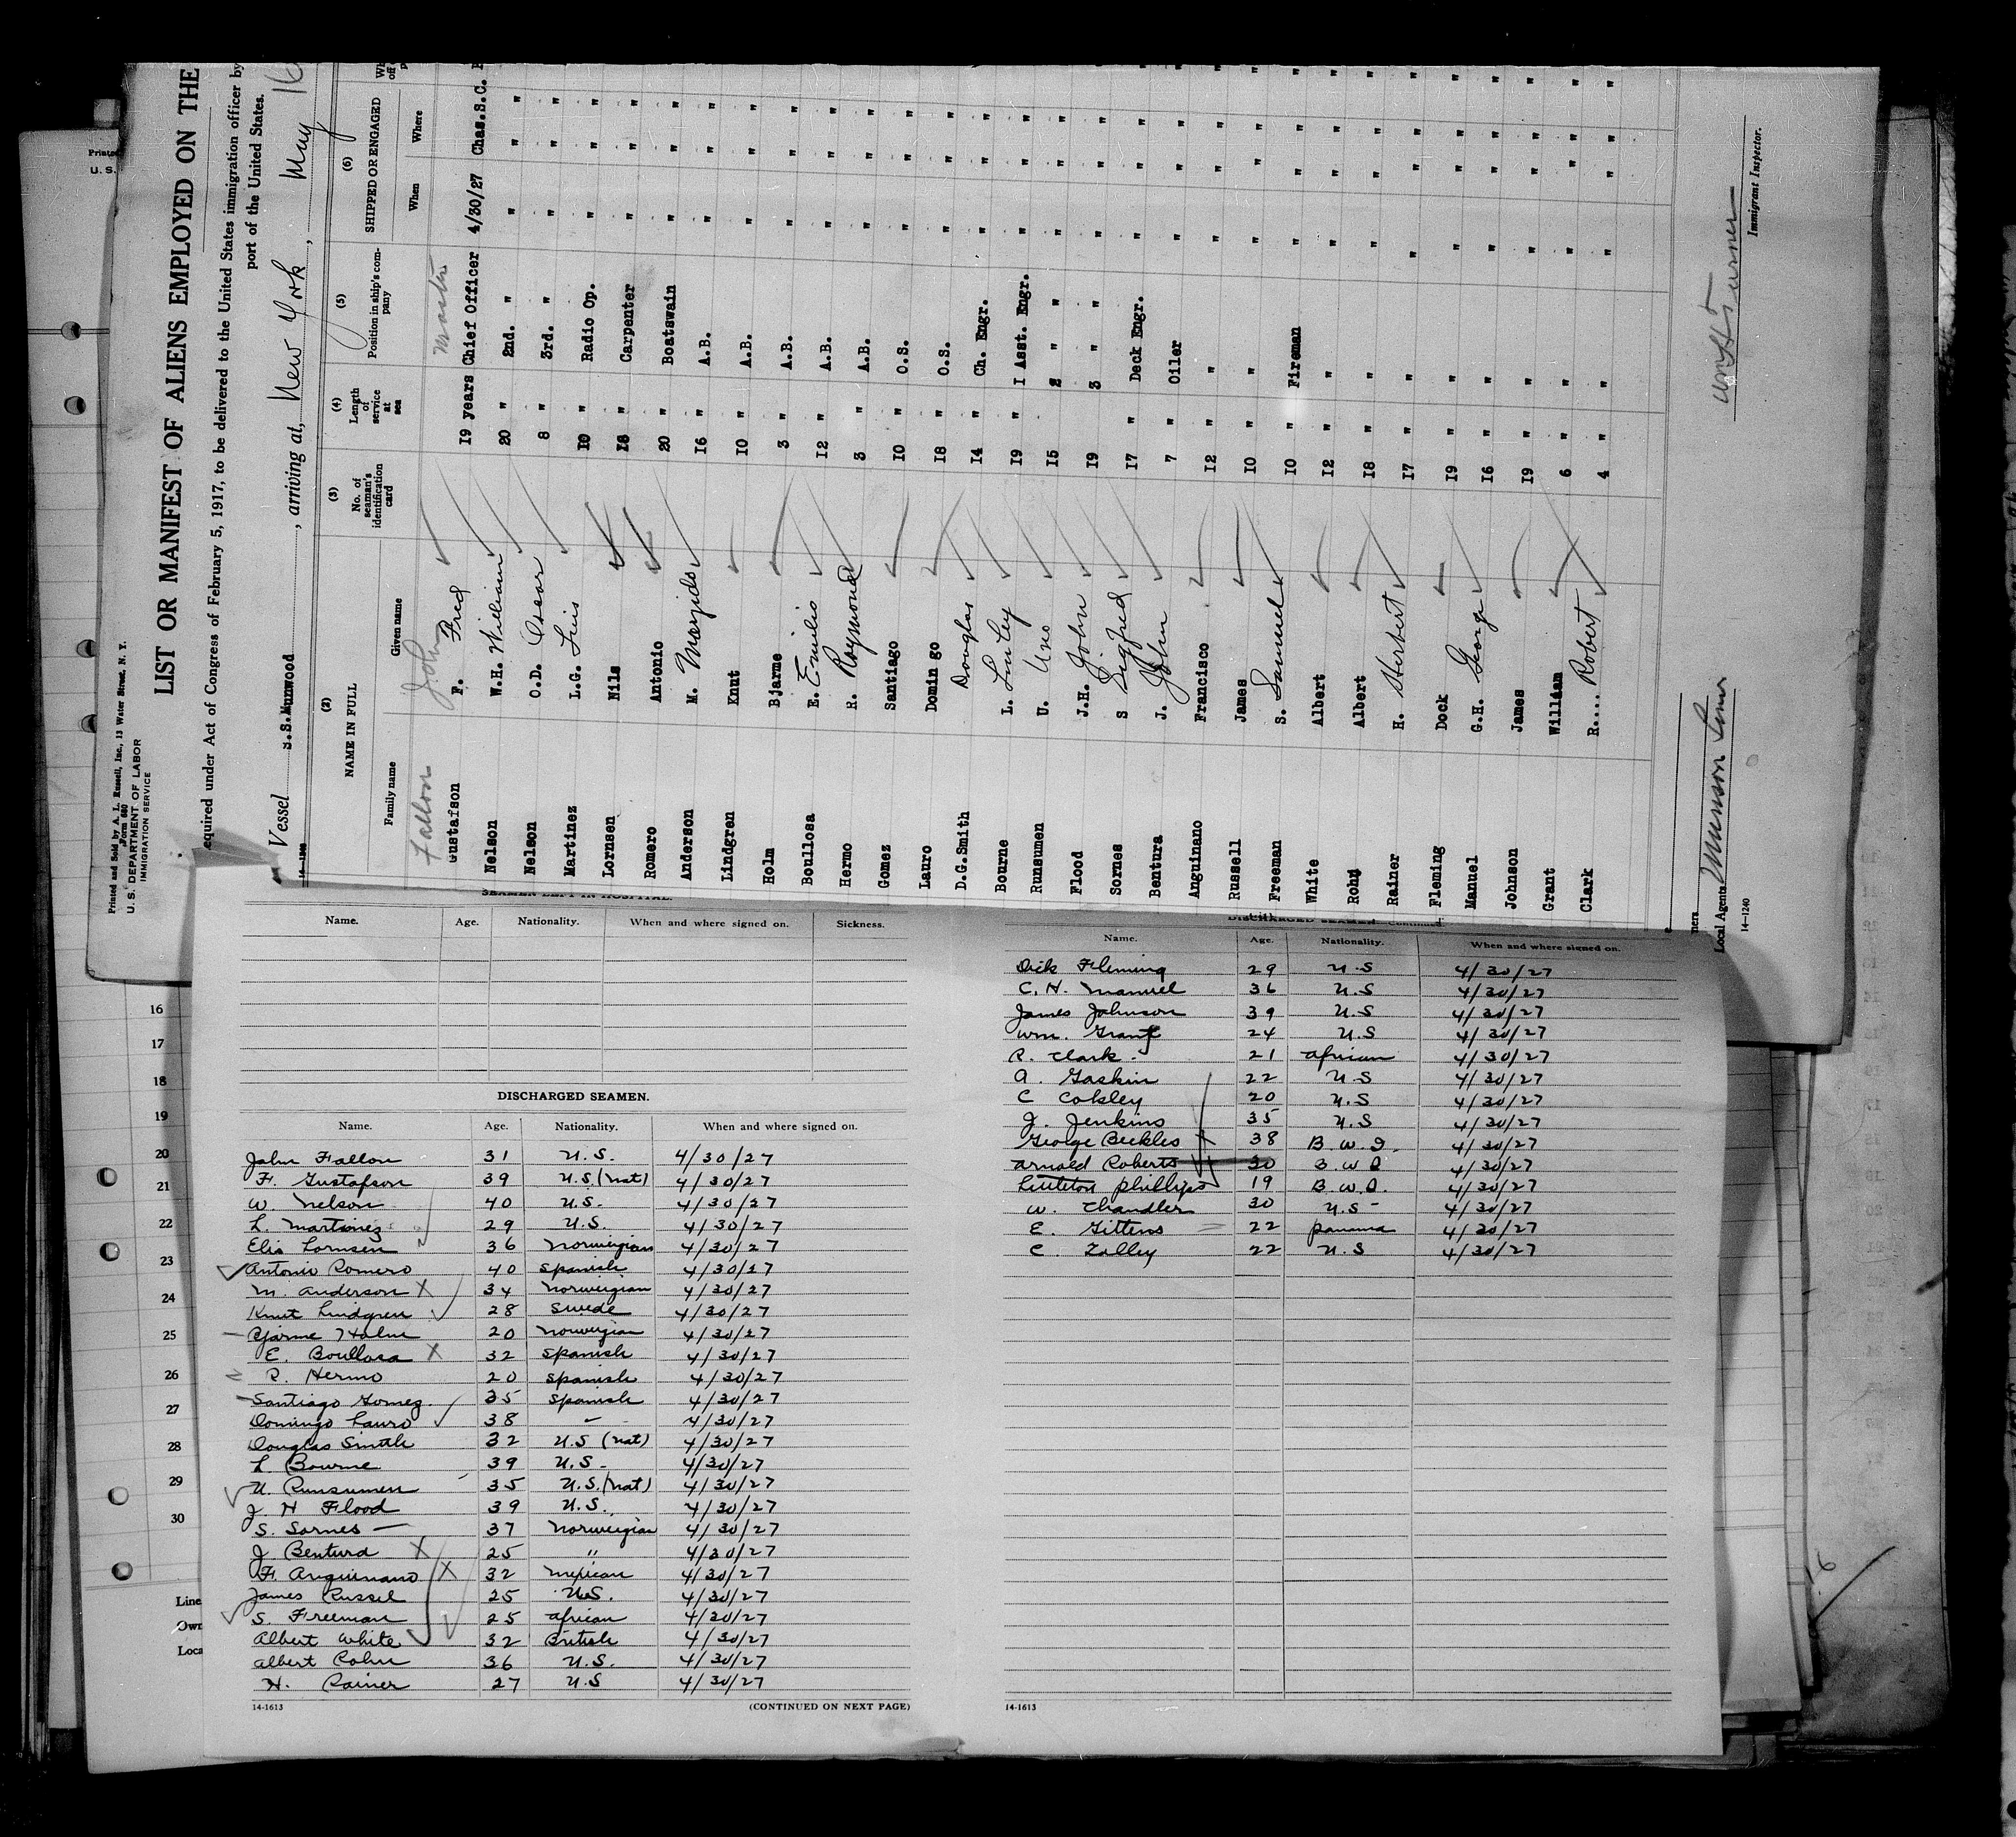 Printed and Sold by A. L. Russell, Inc., 13 Water Street, N. Y.
Form 680
U. S. DEPARTMENT OF LABOR
IMMIGRATION SERVICE
LIST OR MANIFEST OF ALIENS EMPLOYED ON THE
equired under Act of Congress of February 5, 1917, to be delivered to the United States immigration officer by
port of the United States.
Vessel S.S.Munwood, arriving at, New York, May 16
(2) (3) (4) (5) (6)
NAME IN FULL No. of seaman's identification card Length of service at sea Position in ship's company SHIPPED OR ENGAGED
Family name Given name When Where
Fallon John Master
Gustafson F. Fred 19 years Chief Officer 4/30/27 Chas.S.C.
Nelson W.H. William 20 " 2nd. " " "
Nelson O.D. Oscar 8 " 3rd. " " "
Martinez L.G. Luis 10 " Radio Op. " "
Lornsen Nils 18 " Carpenter " "
Romero Antonio 20 " Boatswain " "
Anderson M. 16 " A.B. " "
Lindgren Knut 10 " A.B. " "
Holm Bjarme 3 " A.B. " "
Boullosa E. Emilio 12 " A.B. " "
Hermo R. Raymond 3 " A.B. " "
Gomez Santiago 10 " O.S. " "
Lauro Domin go 18 " O.S. " "
D.G.Smith Douglas 14 " Ch. Engr. " "
Bourne L. 19 " I Asst. Engr. " "
Runsumen U. Uno 15 2 " " " "
Flood J.H. John 19 3 " " " "
Sornes S Sigfred 17 " Deck Engr. " "
Bentura J. John 7 " Oiler " "
Anguinano Francisco 12 " " " "
Russell James 10 " " " "
Freeman S. Samuel 10 " Fireman " "
White Albert 12 " " " "
Rohn Albert 18 " " " "
Rainer H. Herbert 17 " " " "
Fleming Dock 19 " " " "
Manuel G.H. George 16 " " " "
Johnson James 19 " " " "
Grant William 6 " " " "
Clark R.... Robert 4 " " " "
Local Agents Munson Line
14—1240
Immigrant Inspector.
SEAMEN LEFT IN HOSPITAL.
Name. Age. Nationality. When and where signed on. Sickness.
DISCHARGED SEAMEN.
Name. Age. Nationality. When and where signed on.
John Fallon 31 U.S. 4/30/27
F. Gustafson 39 U.S. (nat) 4/30/27
W. Nelson 40 U.S. 4/30/27
L. Martinez 29 U.S. 4/30/27
Elis Lornsen 36 Norweigian 4/30/27
Antonio Romero 40 Spanish 4/30/27
M. Anderson X 34 Norweigian 4/30/27
Knut Lindgren 28 Swede 4/30/27
Bjarme Holm 20 Norweigian 4/30/27
E. Boullosa X 32 Spanish 4/30/27
R. Hermo 20 Spanish 4/30/27
Santiago Gomez. 35 Spanish 4/30/27
Domingo Lauro 38 — 4/30/27
Douglas Smith 32 U.S (nat) 4/30/27
L. Bourne 39 U.S. 4/30/27
U. Runsumen 35 U.S. (nat) 4/30/27
J H Flood 39 U.S. 4/30/27
S. Sornes — 37 Norweigian 4/30/27
J Bentura X 25 " 4/30/27
F. Anguinano X 32 Mexican 4/30/27
James Russel 25 U.S. 4/30/27
S. Freeman 25 African 4/30/27
Albert White 32 British 4/30/27
Albert Rohn 36 U.S. 4/30/27
H. Rainer 27 U.S 4/30/27
14-1613 (CONTINUED ON NEXT PAGE)
DISCHARGED SEAMEN—Continued.
Name. Age. Nationality. When and where signed on.
Dick Fleming 29 U.S 4/30/27
C. H. Manuel 36 U.S 4/30/27
James Johnson 39 U.S 4/30/27
Wm. Grant 24 U.S 4/30/27
R. Clark. 21 African 4/30/27
A. Gaskin 22 U.S 4/30/27
C Cokley 20 U.S 4/30/27
J. Jenkins 35 U.S 4/30/27
George Beckles 38 B.W.I. 4/30/27
Arnold Roberts 30 B.W.I 4/30/27
Littleton Phillips 19 B.W.I. 4/30/27
W. Chandler 30 U.S - 4/30/27
E. Gittens 22 Panama 4/30/27
C. Zalley 22 U.S 4/30/27
14-1613
16
17
18
19
20
21
22
23
24
25
26
27
28
29
30
Line
Own
Loca